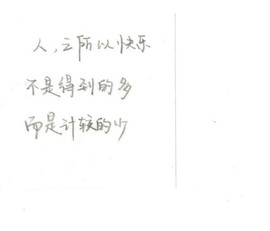 人,之所以快乐
不是得到的多
而是计较的少